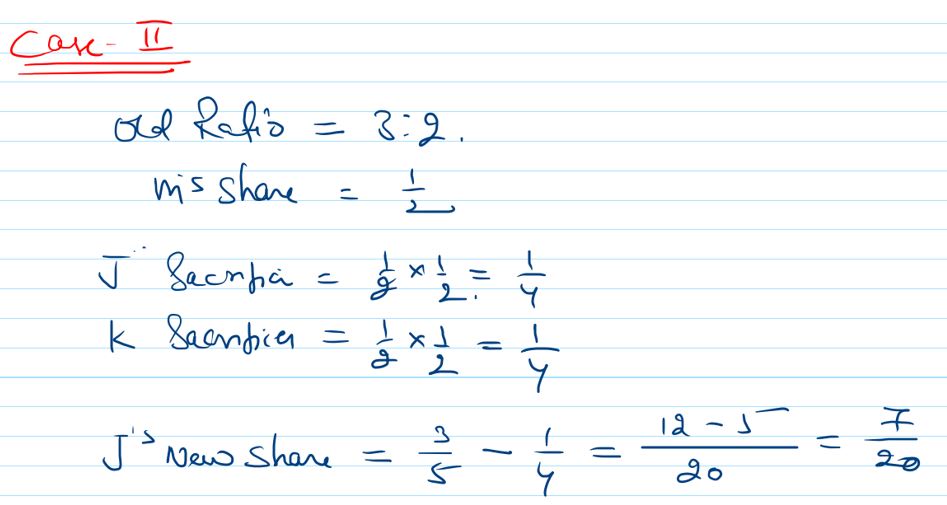 Case - II
Old Ratio = 3:2.
M's Share = 1/2
J Sacrifice = 1/2 × 1/2 = 1/4
K Sacrifices = 1/2 × 1/2 = 1/4
J's New Share = 3/5 - 1/4 = 12 - 5/20 = 7/20